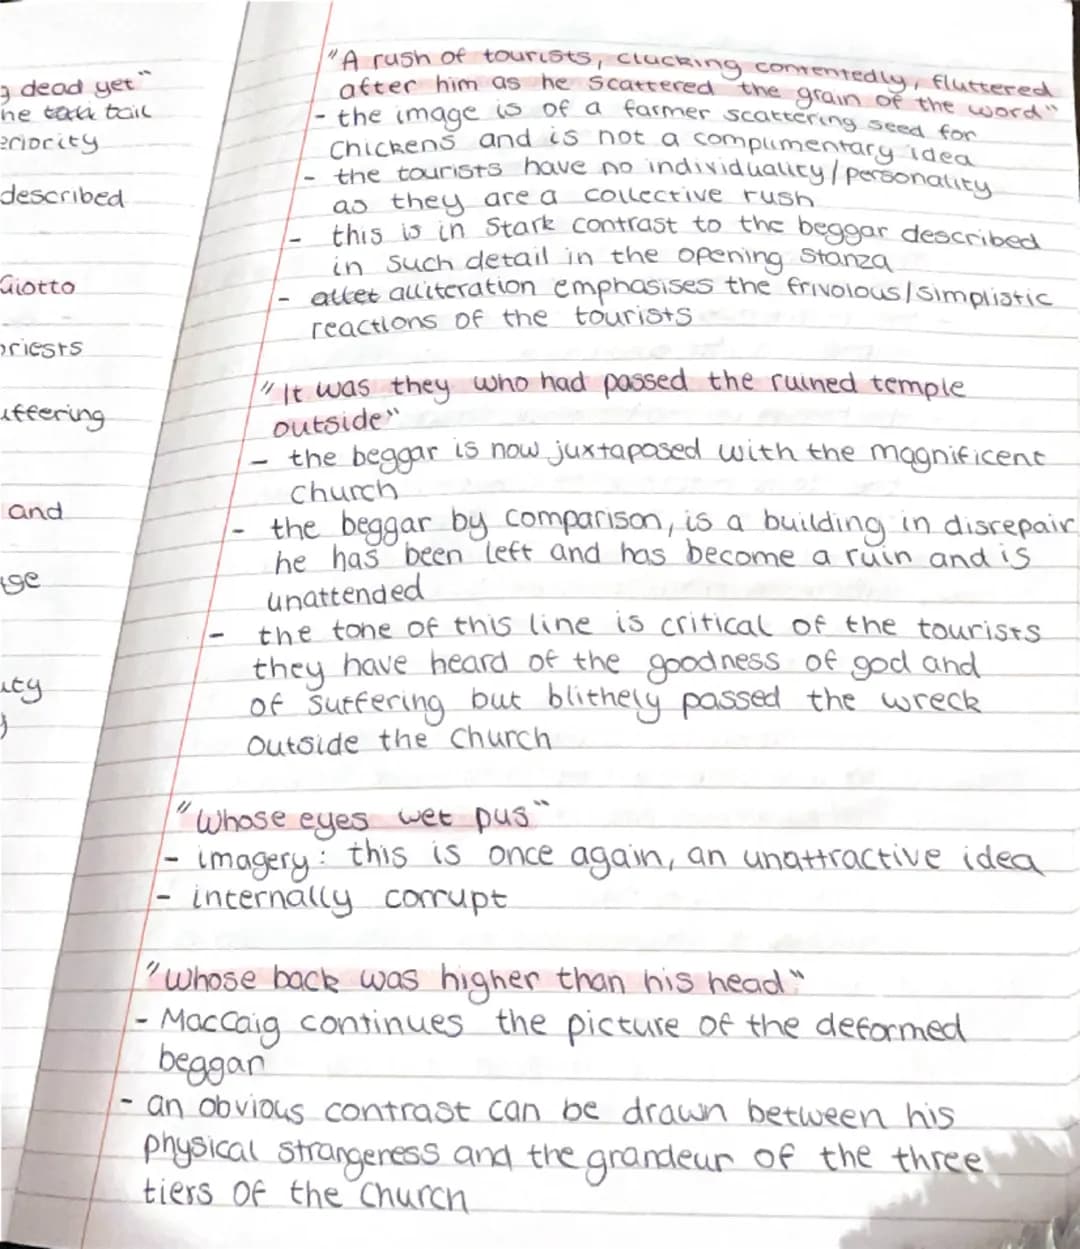 g dead yet"
he tail
eriority
described
Giotto
priests
uffering
and
ity
"A rush of tourists, clucking contentedly, fluttered
after him as he scattered the grain of the word"
- the image is of a farmer scattering seed for
chickens and is not a complimentary idea
- the tourists have no individuality/personality
as they are a collective rush
- this is in stark contrast to the beggar described
in such detail in the opening stanza
- alliteration emphasises the frivolous/simplistic
reactions of the tourists
"It was they who had passed the ruined temple
outside"
- the beggar is now juxtaposed with the magnificent
church
- the beggar by comparison, is a building in disrepair
he has been left and has become a ruin and is
unattended
- the tone of this line is critical of the tourists
they have heard of the goodness of god and
of suffering but blithely passed the wreck
outside the church
"Whose eyes wet pus"
- imagery: this is once again, an unattractive idea
- internally corrupt
"Whose back was higher than his head"
- MacCaig continues the picture of the deformed
beggar
- an obvious contrast can be drawn between his
physical strangeness and the grandeur of the three
tiers of the church